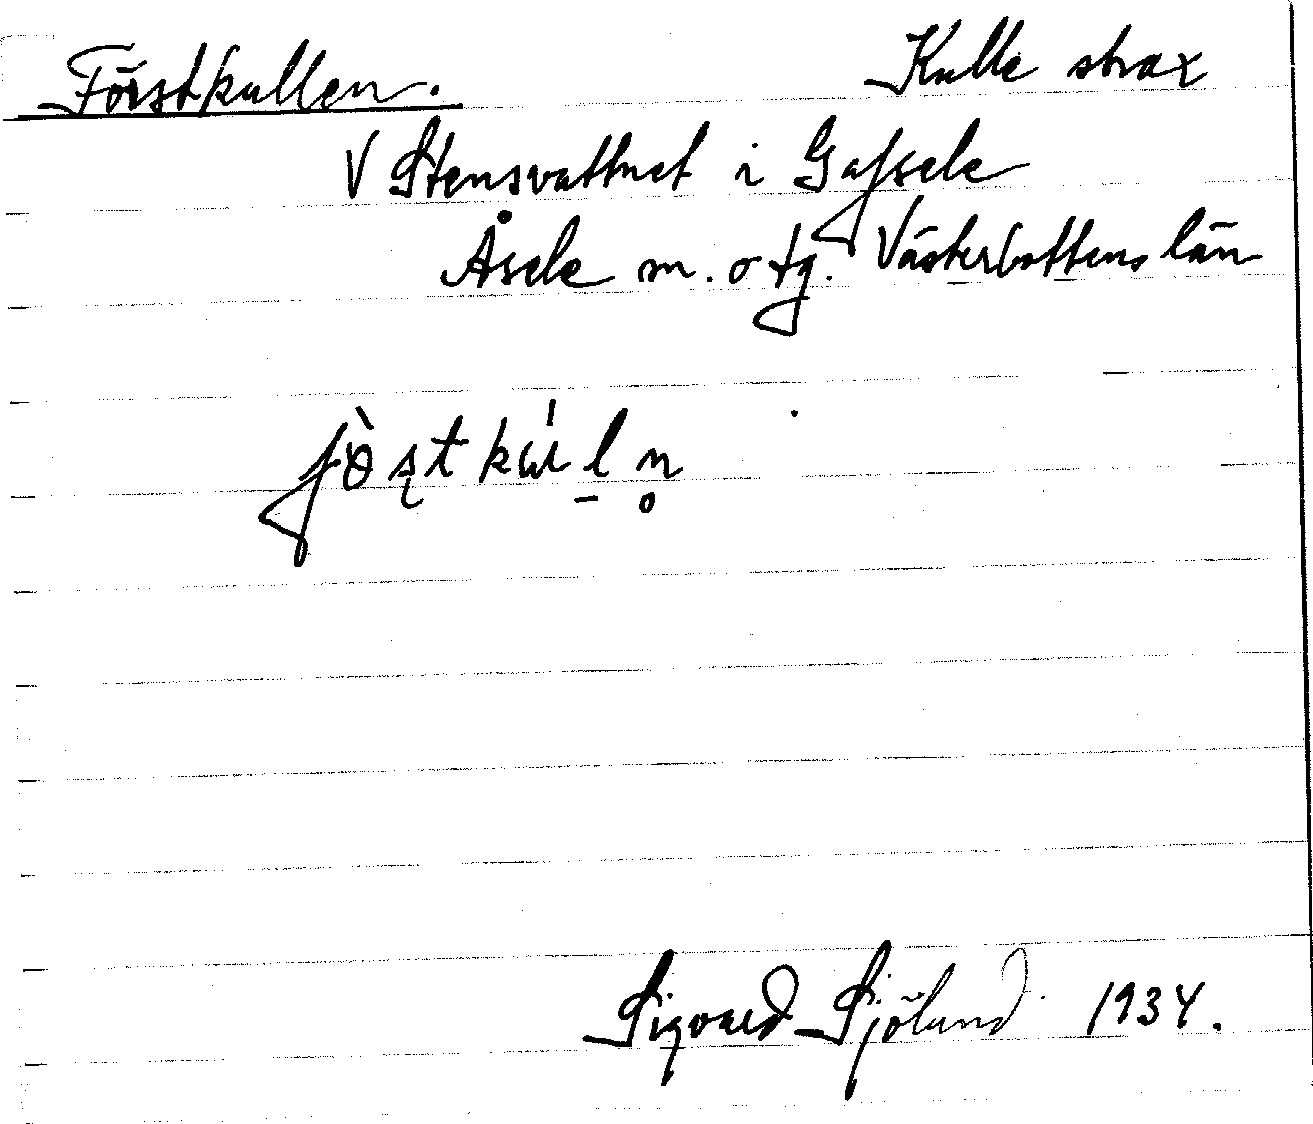 Förstkullen. Kulle strax
V Stensvattnet i Gafsele
Åsele m. o tg. Västerbottens län
Sigvard Sjölund 1934.